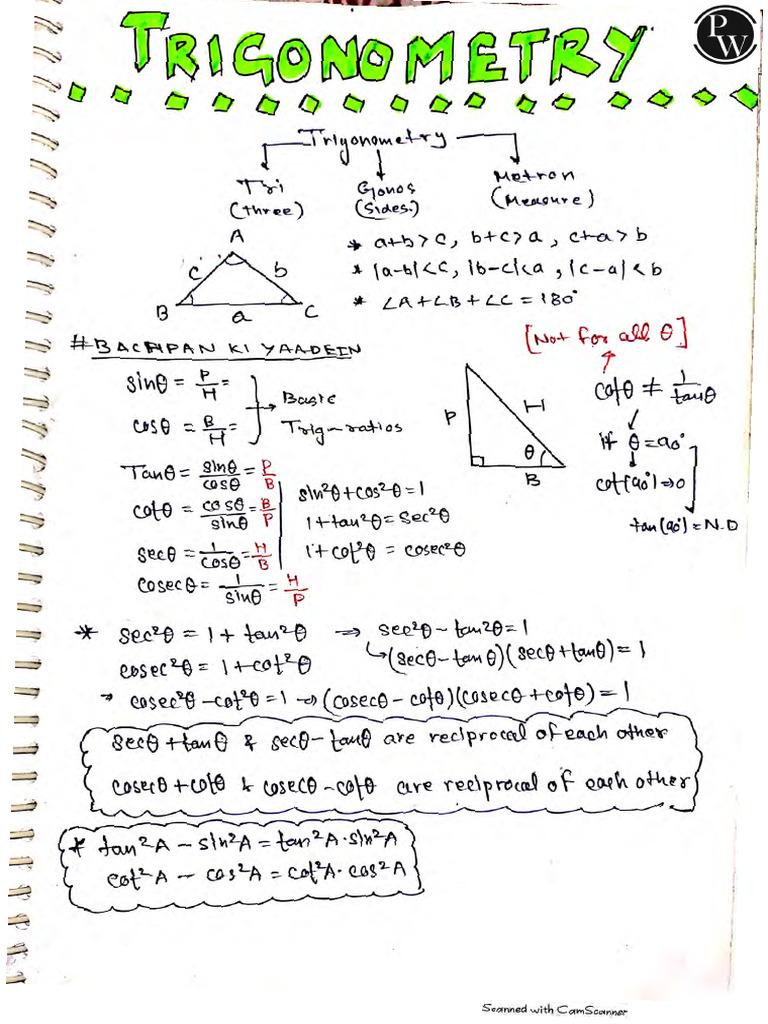 TRIGONOMETRY
PW
Trigonometry
Tri
(three)
Gonos
(Sides.)
Metron
(Measure)
A
c
b
B
a
C
* a+b>c, b+c>a, c+a>b
* |a-b|<c, |b-c|<a, |c-a|<b
* ∠A+∠B+∠C=180°
#BACHPAN KI YAADEIN
sinθ = P/H =
cosθ = B/H =
→ Basic
Trig-ratios
Tanθ = sinθ/cosθ = P/B
cotθ = cosθ/sinθ = B/P
secθ = 1/cosθ = H/B
cosecθ = 1/sinθ = H/P
sin²θ+cos²θ=1
1+tan²θ=sec²θ
1+cot²θ = cosec²θ
P
H
θ
B
[Not for all θ]
cotθ ≠ 1/tanθ
if θ=90°
cot(90°)⇒0
tan(90°)=N.D
* sec²θ = 1+tan²θ → sec²θ-tan2θ=1
↳(secθ-tanθ)(secθ+tanθ)=1
cosec²θ = 1+cot²θ
→ cosec²θ-cot²θ=1 → (cosecθ-cotθ)(cosecθ+cotθ)=1
secθ+tanθ & secθ-tanθ are reciprocal of each other
cosecθ+cotθ & cosecθ-cotθ are reciprocal of each other
* tan²A - sin²A = tan²A·sin²A
cot²A - cos²A = cot²A·cos²A
Scanned with CamScanner